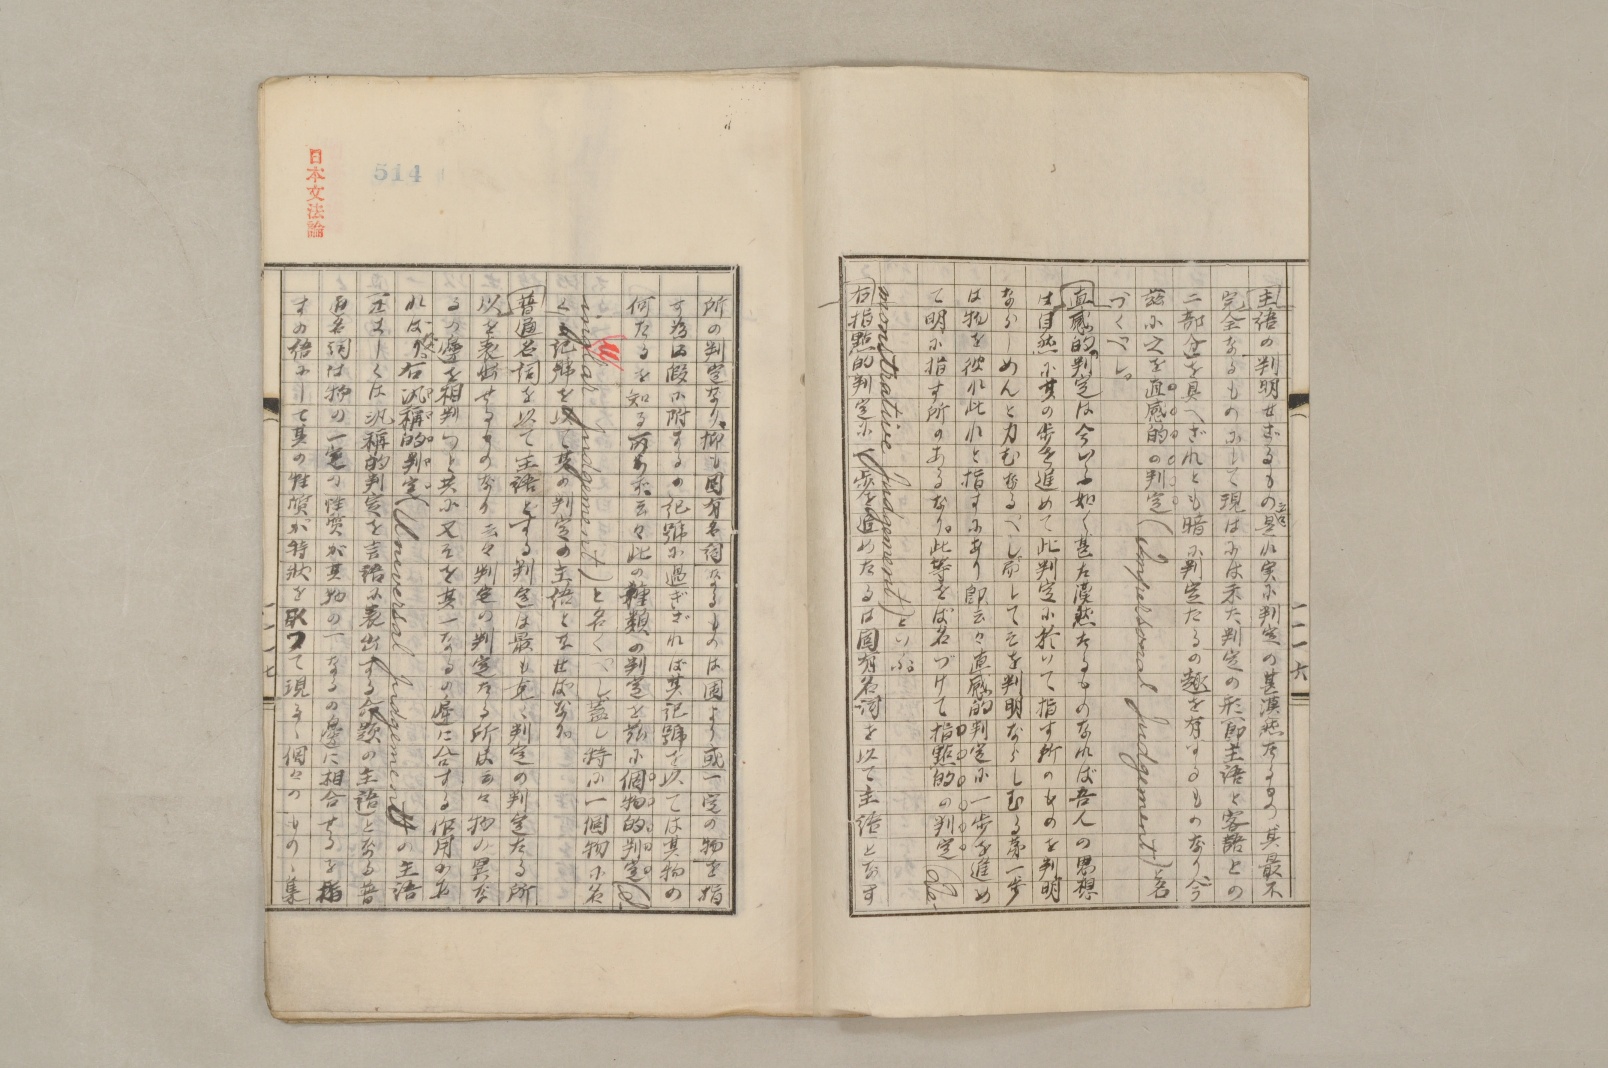 主語の判明せざるもの是れ実に判定の甚漠然たるもの其最不
完全なるものにして現はには未だ判定の形即主語と客語との
二部分を具へざれども暗に判定たるの趣を有するものなり今
茲に之を直感的の判定(Impersonal Judgement)と名
づくべし。
直感的判定は今いふ如く甚だ漠然たるものなれば吾人の思想
は自然に其の歩を進めて此判定に於いて指す所のものを判明
ならしめんと力むなるべし而してそを判明ならしむる第一歩
は物を彼れ此れと指すにあり即云々直感的判定に一歩を進め
て明に指す所のあるなり。此等をば名づけて指點的の判定(De-
monstrative Judgement)といふ
右指點的判定に一歩を進めたるは固有名詞を以て主語となす
一一六
所の判定なり。抑も固有名詞なるものは固より或一定の物を指
す為に假に附するの記號に過ぎざれば其記號を以ては其物の
何たるを知る所あらず云々此の種類の判定を茲に個物的判定(S-
ingular Judgement)と名くべし蓋し特に一個物に名
くる記號を以て其の判定の主語となせばなり
普通名詞を以て主語とする判定は最も克く判定の判定たる所
以を表出せるものなり云々判定の判定たる所は云々物の異な
るの處を相判つと共に又そを其一なるの處に合する作用にあ
ればなり右汎稱的判定(Universal Judgement)の主語
正しくは汎稱的判定を言語に表出する命題の主語となる普
通名詞は物の一定の性質が其物の一なるの處に相合せるを指
すの語にして其の性質が特状を取つて現るゝ個々のものゝ集
一一七
日本文法論
514